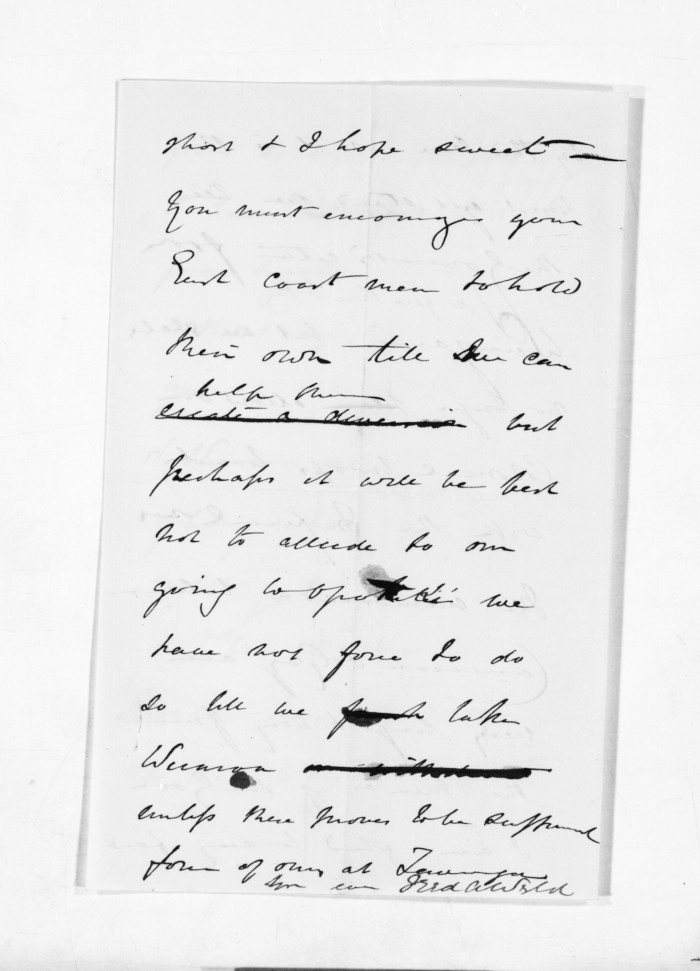 short & I hope sweet —
You must encourage your
East Coast men to hold
their own till we can
help them
create a diversion but
perhaps it will be best
not to allude to our
going to Opotiki we
have not force to do
so till we take
Weraroa
unless there proves to be sufficient
force of ours at Tauranga
Yrs ever Fred A Weld